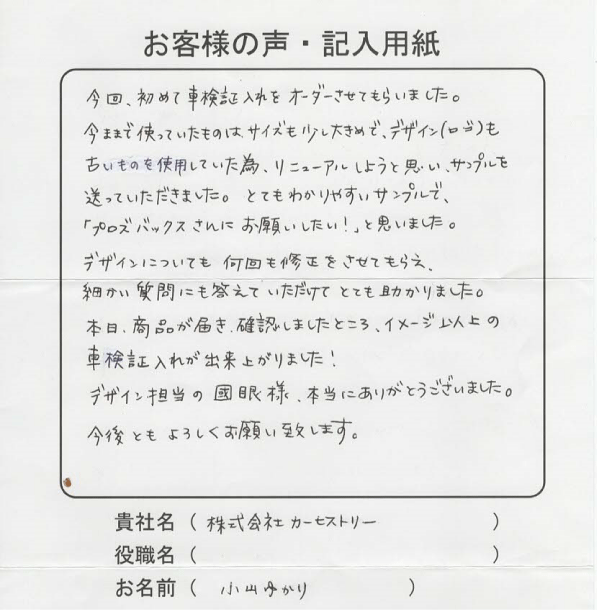 お客様の声・記入用紙
今回、初めて車検証入れをオーダーさせてもらいました。
今まで使っていたものは、サイズも少し大きめで、デザイン(ロゴ)も
古いものを使用していた為、リニューアルしようと思い、サンプルを
送っていただきました。とてもわかりやすいサンプルで、
「プロズバックスさんにお願いしたい!」と思いました。
デザインについても何回も修正をさせてもらえ、
細かい質問にも答えていただけてとても助かりました。
本日、商品が届き、確認しましたところ、イメージ以上の
車検証入れが出来上がりました!
デザイン担当の國眼様、本当にありがとうございました。
今後ともよろしくお願い致します。
貴社名(株式会社カーセストリー)
役職名( )
お名前(小山ゆかり)